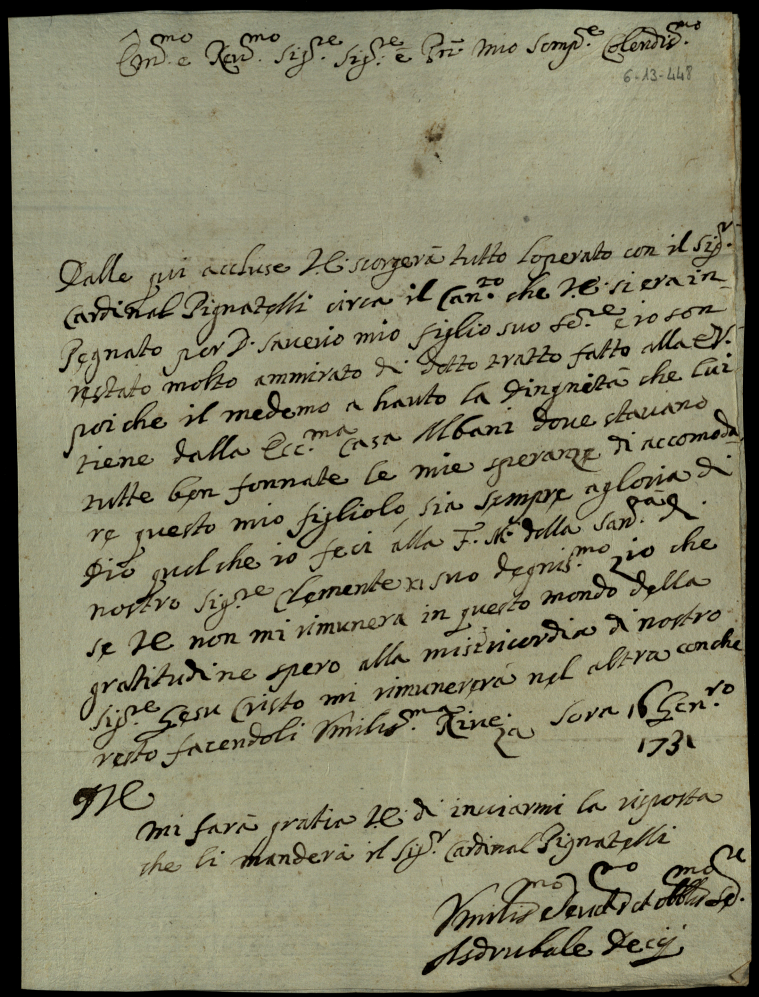 Em.mo e Rev.mo Sig.re Sig.re e Prñ mio Semp.e Colendis.mo
6-13-448
Dalle qui accluse VE scorgerà tutto l'operato con il Sig.r
Cardinal Pignatelli circa il Can.to che VE si era in-
Pegnato per D. Saverio mio figlio suo Se.re e io son
restato molto ammirato di detto tratto fatto alla EV.
poi che il medemo a hauto la dingnità che lui
tiene dalla Ecc.ma Casa Albani dove stavano
tutte ben fonnate le mie speranze di accomoda
re questo mio figliolo sia sempre a gloria di
Dio quel che io feci alla F. M. della San.tà di
nostro Sig.re Clemente XI suo degnis.mo zio che
se VE non mi rimunera in questo mondo della
gratitudine spero alla misericordia di nostro
Sig.re Gesu Cristo mi rimunererà nel altra con che
resto facendoli Vmilis.ma Rive.za Sora 16 Gen.ro
1731
VE
mi farà gratia VE di inviarmi la risposta
che li manderà il Sig.r Cardinal Pignatelli
Vmilis.mo e Devot.mo et obblis.mo Se.re
Asdrubale Decij